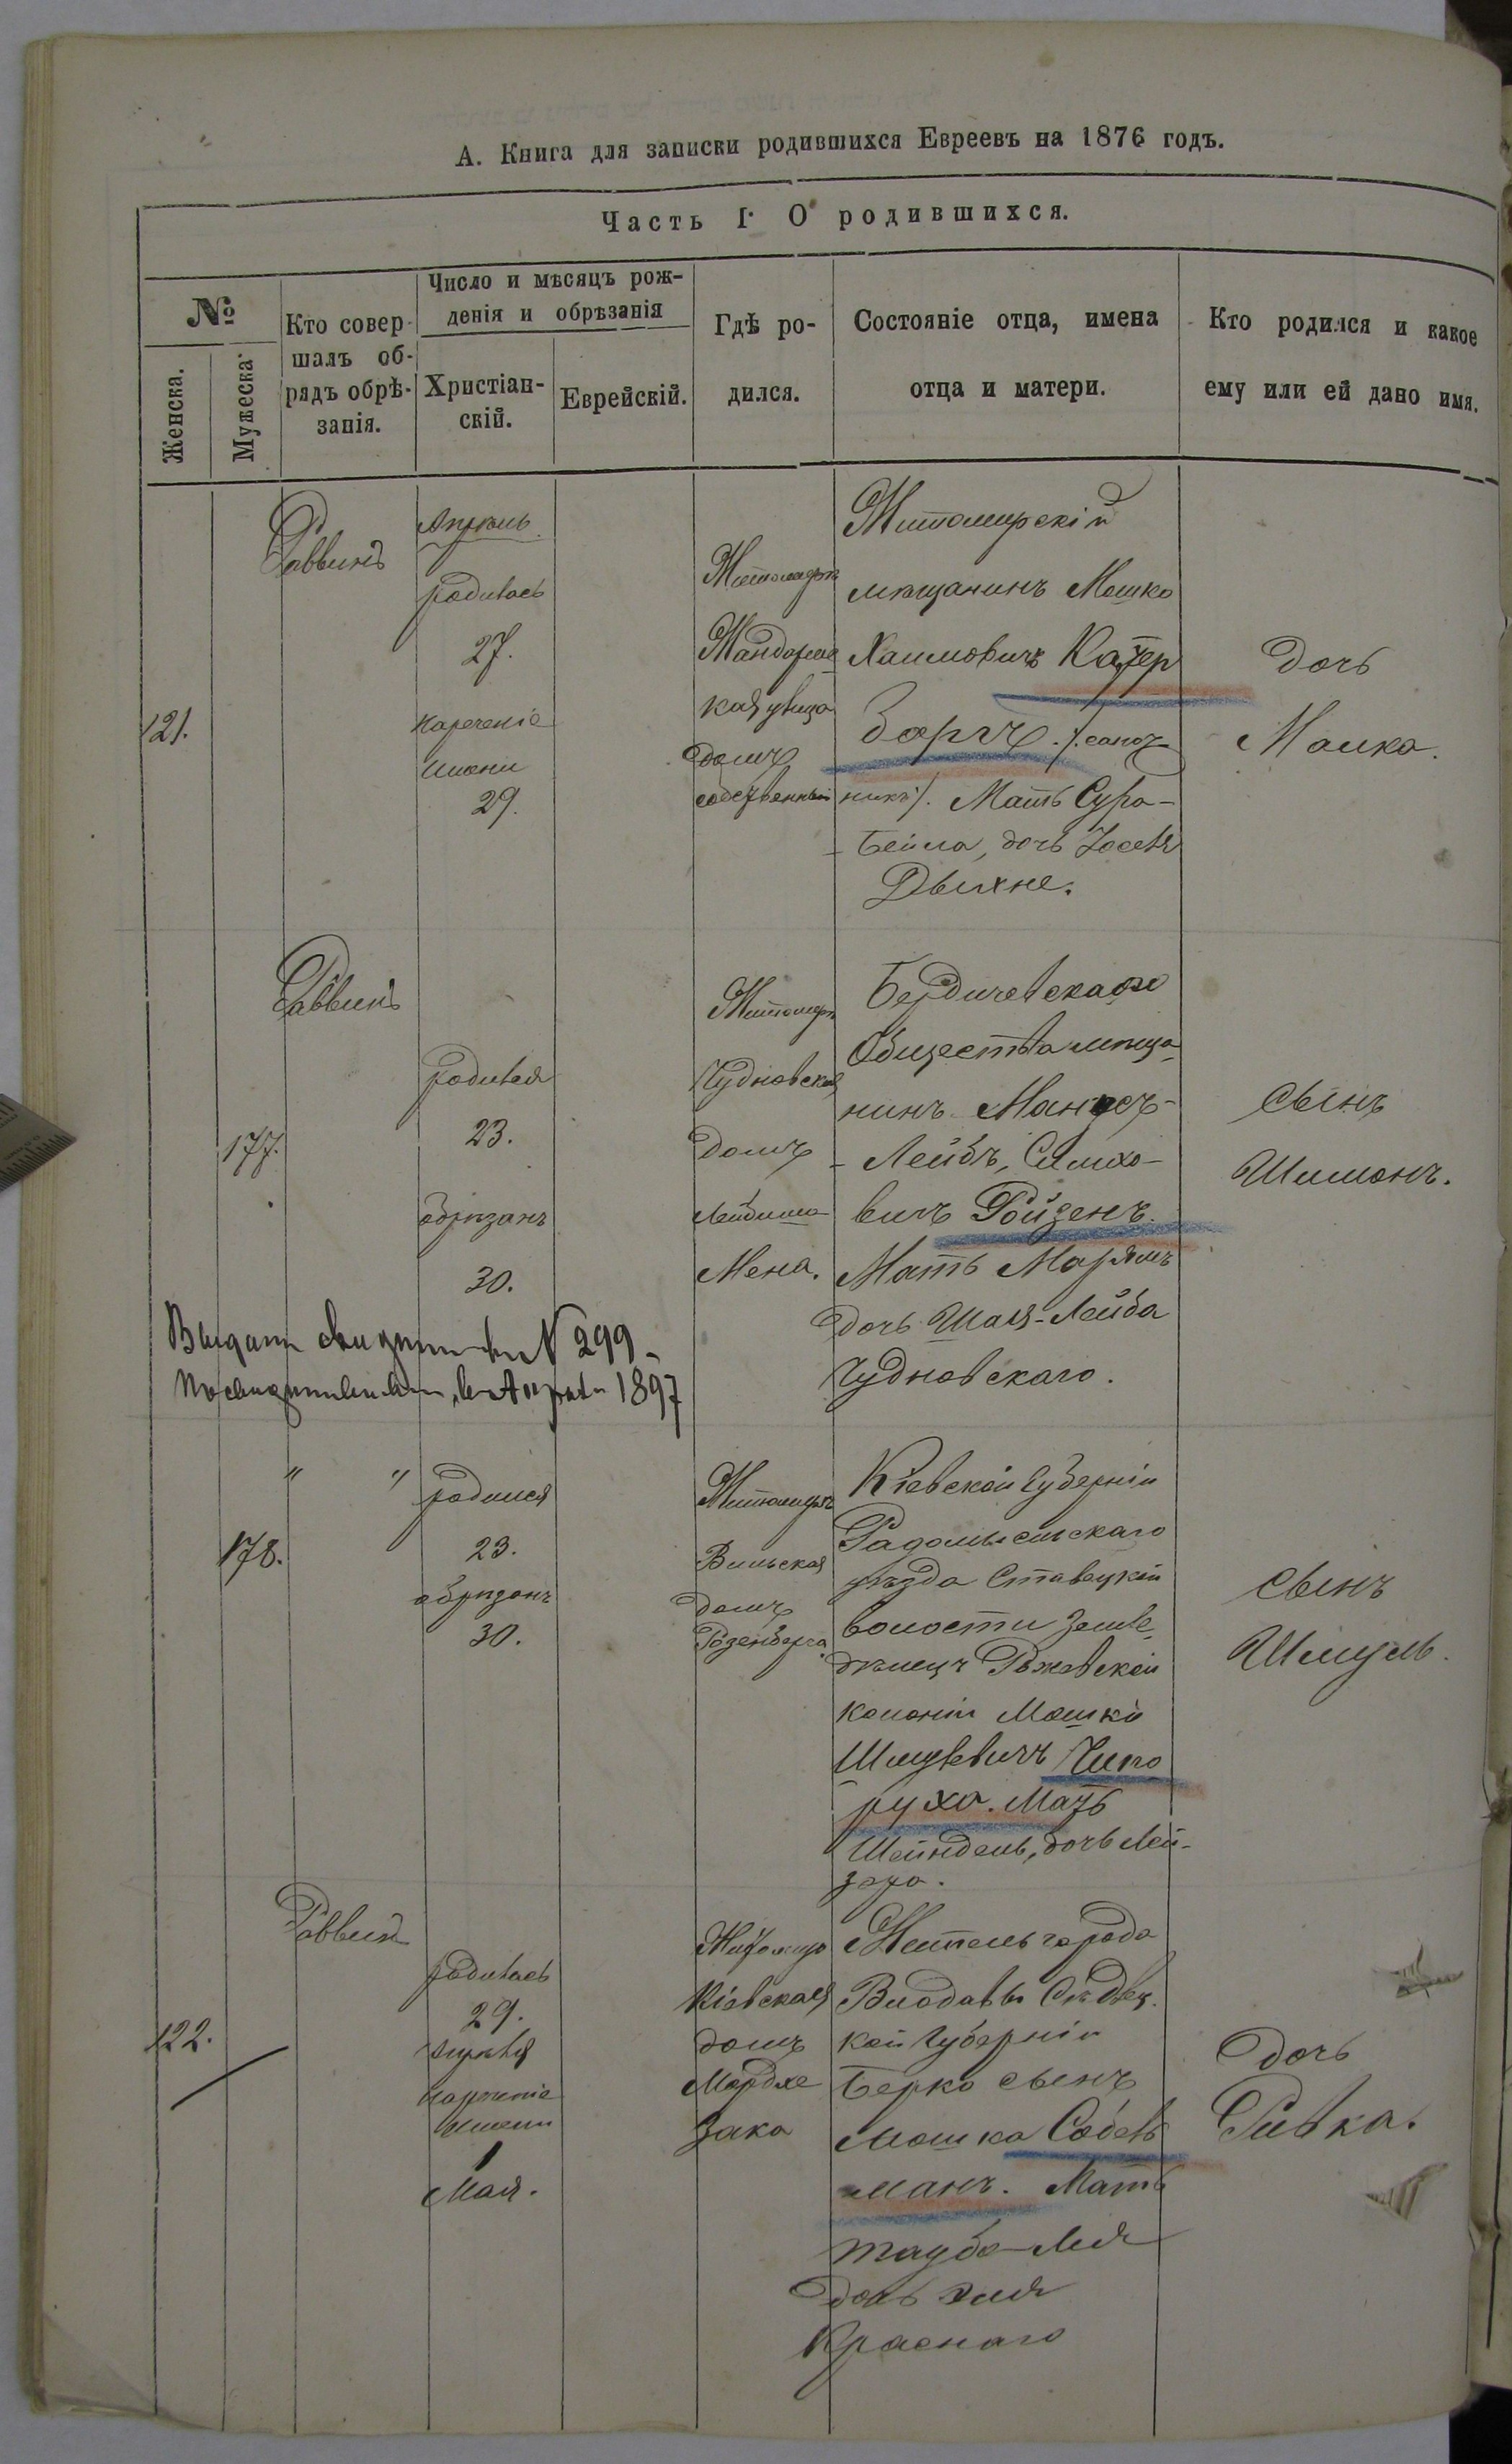 А. Книга для записки родившихся Евреевъ на 1876 годъ.
Часть I. О родившихся.
№
Женска.
Мужеска.
Кто совер-
шалъ об-
рядъ обрѣ-
занія.
Число и мѣсяцъ рож-
денія и обрѣзанія
Христіан-
скій.
Еврейскій.
Гдѣ ро-
дился.
Состояніе отца, имена
отца и матери.
Кто родился и какое
ему или ей дано имя.
121.
Раввинъ
Апрѣль
родилась
27.
нареченіе
имени
29.
Житомиръ
кая улица
домъ
собственный
Житомирскій
мѣщанинъ Мошко
Хаимовичъ
/сапож
никъ/. Мать Сура-
-Бейла, дочь Иосевя
Двихне.
дочь
Малка.
177.
Раввинъ
родился
23.
обрѣзанъ
30.
Житомиръ
Чудновская
домъ
Мена.
Бердичевскаго
Общества мѣща-
нинъ
-Лейбъ, Симхо-
вичъ Ройзенъ.
Мать Марьямъ
дочь Шая-Лейба
Чудновскаго.
сынъ
Шимонъ.
№ 299
1897
178.
" "
родился
23.
обрѣзанъ
30.
Житомиръ
Вильская
домъ
Розенберга.
Кіевской Губерніи
Радомысльскаго
уѣзда Ставецкой
волости Земле-
дѣлецъ Ржевской
колоніи Мошко
Шмулевичъ Чипо
руха. Мать
Шейндель, дочь Лей-
зера.
сынъ
Шмуль.
122.
Раввинъ
родилась
29.
Апрѣля
нареченіе
имени
1
Мая.
Житомиръ
Кіевская
домъ
Мордхе
Зака
Житель города
Влодавы Сѣдлец.
кой Губерніи
Берко сынъ
Мошка Собель
манъ. Мать
Тауба-Лея
дочь Эля
Краснаго
дочь
Ривка.